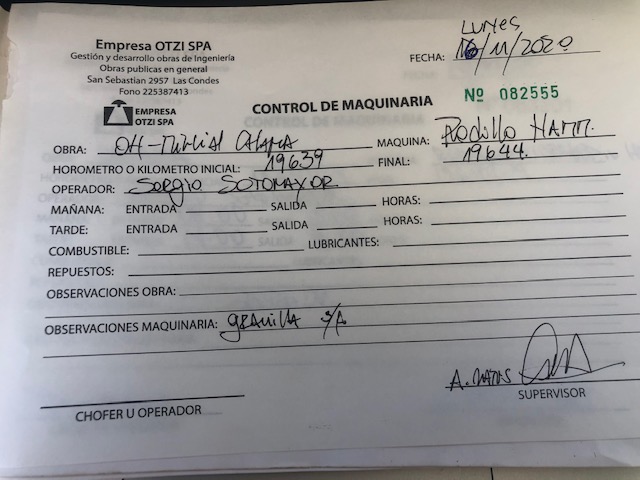 Empresa OTZI SPA
Gestión y desarrollo obras de Ingeniería
Obras publicas en general
San Sebastian 2957 Las Condes
Fono 225387413
EMPRESA
OTZI SPA
LUNES
FECHA: 16/11/2020
CONTROL DE MAQUINARIA
Nº 082555
OBRA: CALAMA MAQUINA: Rodillo HAMM.
HOROMETRO O KILOMETRO INICIAL: 19639 FINAL: 19644.
OPERADOR: Sergio SOTOMAYOR
MAÑANA: ENTRADA SALIDA HORAS:
TARDE: ENTRADA SALIDA HORAS:
COMBUSTIBLE: LUBRICANTES:
REPUESTOS:
OBSERVACIONES OBRA:
OBSERVACIONES MAQUINARIA: gravilla
CHOFER U OPERADOR
SUPERVISOR